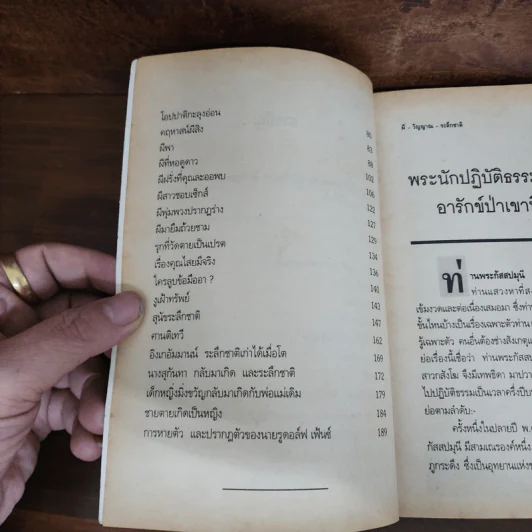 โอปปาติกะลุงอ่อน
คฤหาสน์ผีสิง 80
ผีพา 83
ผีที่หอดูดาว 88
ผีฝรั่งที่คุณละออพบ 102
ผีสาวชอบเซ็กส์ 106
ผีพุ่มพวงปรากฏร่าง 122
ผีมายืมถ้วยชาม 127
รุกที่วัดตายเป็นเปรต 129
เรื่องคุณไสยมีจริง 134
ใครลูบข้อมืออา ? 136
งูเฝ้าทรัพย์ 141
สุนัขระลึกชาติ 143
ศานติเทวี 147
อิงเกอัมมานน์ ระลึกชาติเก่าได้เมื่อโต 162
นางสุกันทา กลับมาเกิด และระลึกชาติ 169
เด็กหญิงมิ่งขวัญกลับมาเกิดกับพ่อแม่เดิม 172
ชายตายเกิดเป็นหญิง 179
การหายตัว และปรากฏตัวของนายรูดอล์ฟ เฟ้นซ์ 184
189
ผี - วิญญาณ - ระลึกชาติ
พระนักปฏิบัติธรรม
อารักษ์ป่าเขา
ท่านพระกัสสปมุนี
ท่านแสวงหาที่ส
เข้มงวดและต่อเนื่องเสมอมา ซึ่งท่า
ขั้นไหนบ้างเป็นเรื่องเฉพาะตัวท่าน
รู้เฉพาะตัว คนอื่นต้องช่างสังเกตุแ
ย่อเรื่องนี้เชื่อว่า ท่านพระกัสสป
สาวกสังโฆ จึงมีเทพธิดา มาปวา
ไปปฏิบัติธรรมเป็นเวลาครึ่งปีบ
ย่อตามลำดับ:-
ครั้งหนึ่งในปลายปี พ.
กัสสปมุนี มีสามเณรองค์หนึ่ง
ภูกระดึง ซึ่งเป็นอุทยานแห่งช